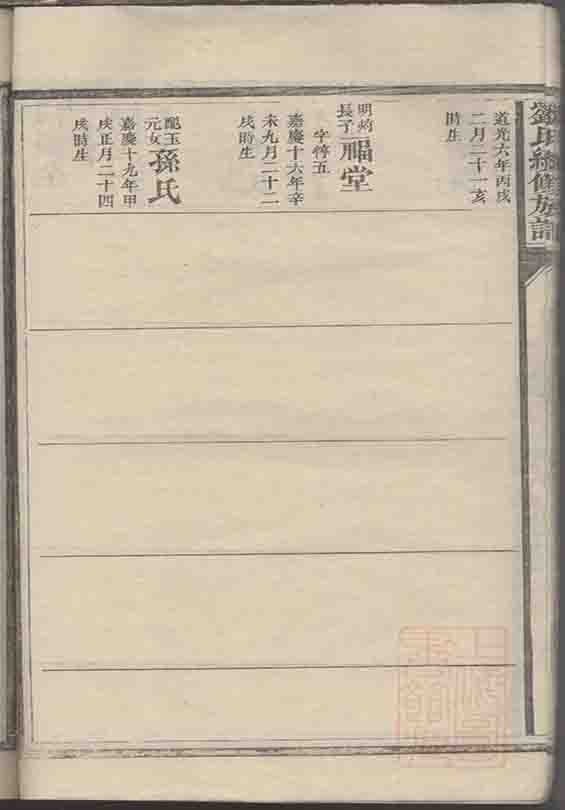 劉氏續修族譜
道光六年丙戌
二月二十一亥
時生
明灼
長子福堂
字惇五
嘉慶十六年辛
未九月二十二
戌時生
配玉
元女孫氏
嘉慶十九年甲
戌正月二十四
戌時生